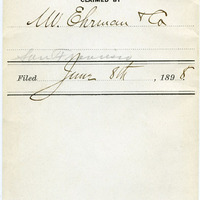 CLAIMED BY
M. Ehrman & Co
San Francisco
Filed June 8th, 1898